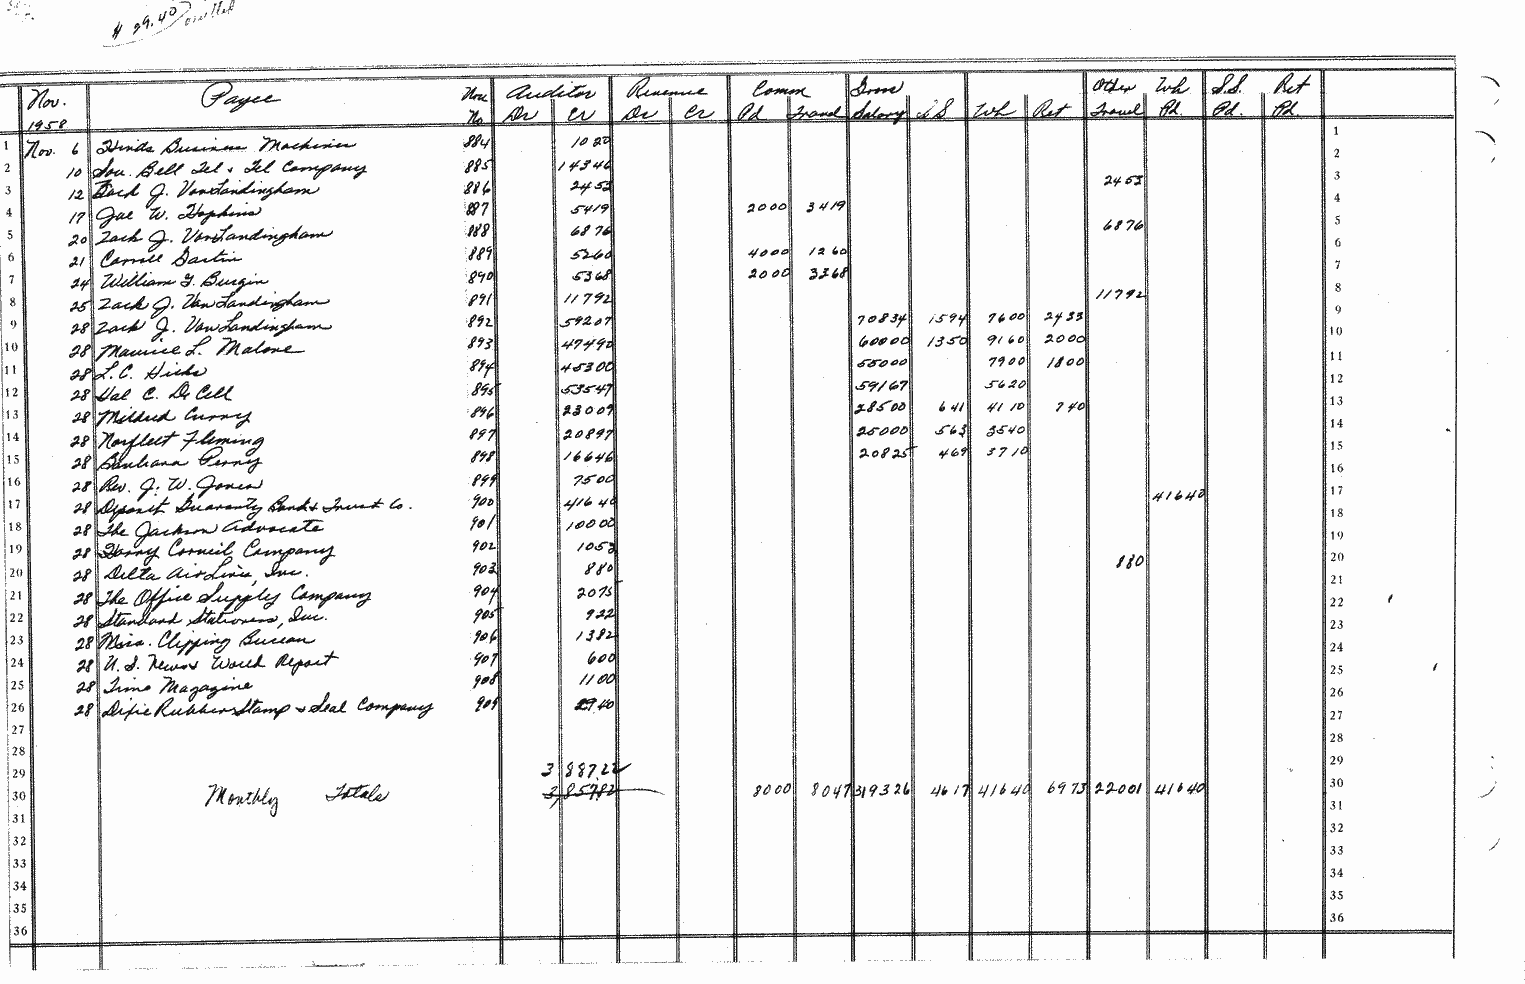 $ 29.40 omitted
Nov. 1958 Payee Vou No Auditor Dr Cr Revenue Dr Cr Comm Pd Travel Gross Salary S S Wh Ret Other Travel Wh Pd. S.S. Pd. Ret Pd.
1 Nov. 6 Hinds Business Machines 884 1020 1
2 10 Sou. Bell Tel & Tel Company 885 14346 2
3 12 Zack J. VanLandingham 886 2453 2453 3
4 17 Joe W. Hopkins 887 5419 2000 3419 4
5 20 Zack J. VanLandingham 888 6876 6876 5
6 21 Carroll Gartin 889 5260 4000 1260 6
7 24 William G. Burgin 890 5368 2000 3368 7
8 25 Zack J. VanLandingham 891 11792 11792 8
9 28 Zack J. VanLandingham 892 59207 70834 1594 7600 2433 9
10 28 Maurice L. Malone 893 47490 60000 1350 9160 2000 10
11 28 L. C. Hicks 894 45300 55000 7900 1800 11
12 28 Hal C. DeCell 895 53547 59167 5620 12
13 28 Mildred Curry 896 23009 28500 641 4110 740 13
14 28 Norfleet Fleming 897 20897 25000 563 3540 14
15 28 Barbara Perry 898 16646 20825 469 3710 15
16 28 Rev. J. W. Jones 899 7500 16
17 28 Deposit Guaranty Bank & Trust Co. 900 41640 41640 17
18 28 The Jackson Advocate 901 10000 18
19 28 Harry Corneil Company 902 1053 19
20 28 Delta Air Line, Inc. 903 880 880 20
21 28 The Office Supply Company 904 2075 21
22 28 Standard Stationers, Inc. 905 922 22
23 28 Miss. Clipping Bureau 906 1382 23
24 28 U. S. News & World Report 907 600 24
25 28 Time Magazine 908 1100 25
26 28 Dixie Rubber Stamp & Seal Company 909 2940 26
27 27
28 28
29 3 887.22 29
30 Monthly Totals 3,857.82 8000 8047 319326 4617 41640 6973 22001 41640 30
31 31
32 32
33 33
34 34
35 35
36 36